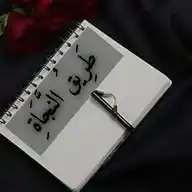 طَرِيقُ النَّجَاةِ